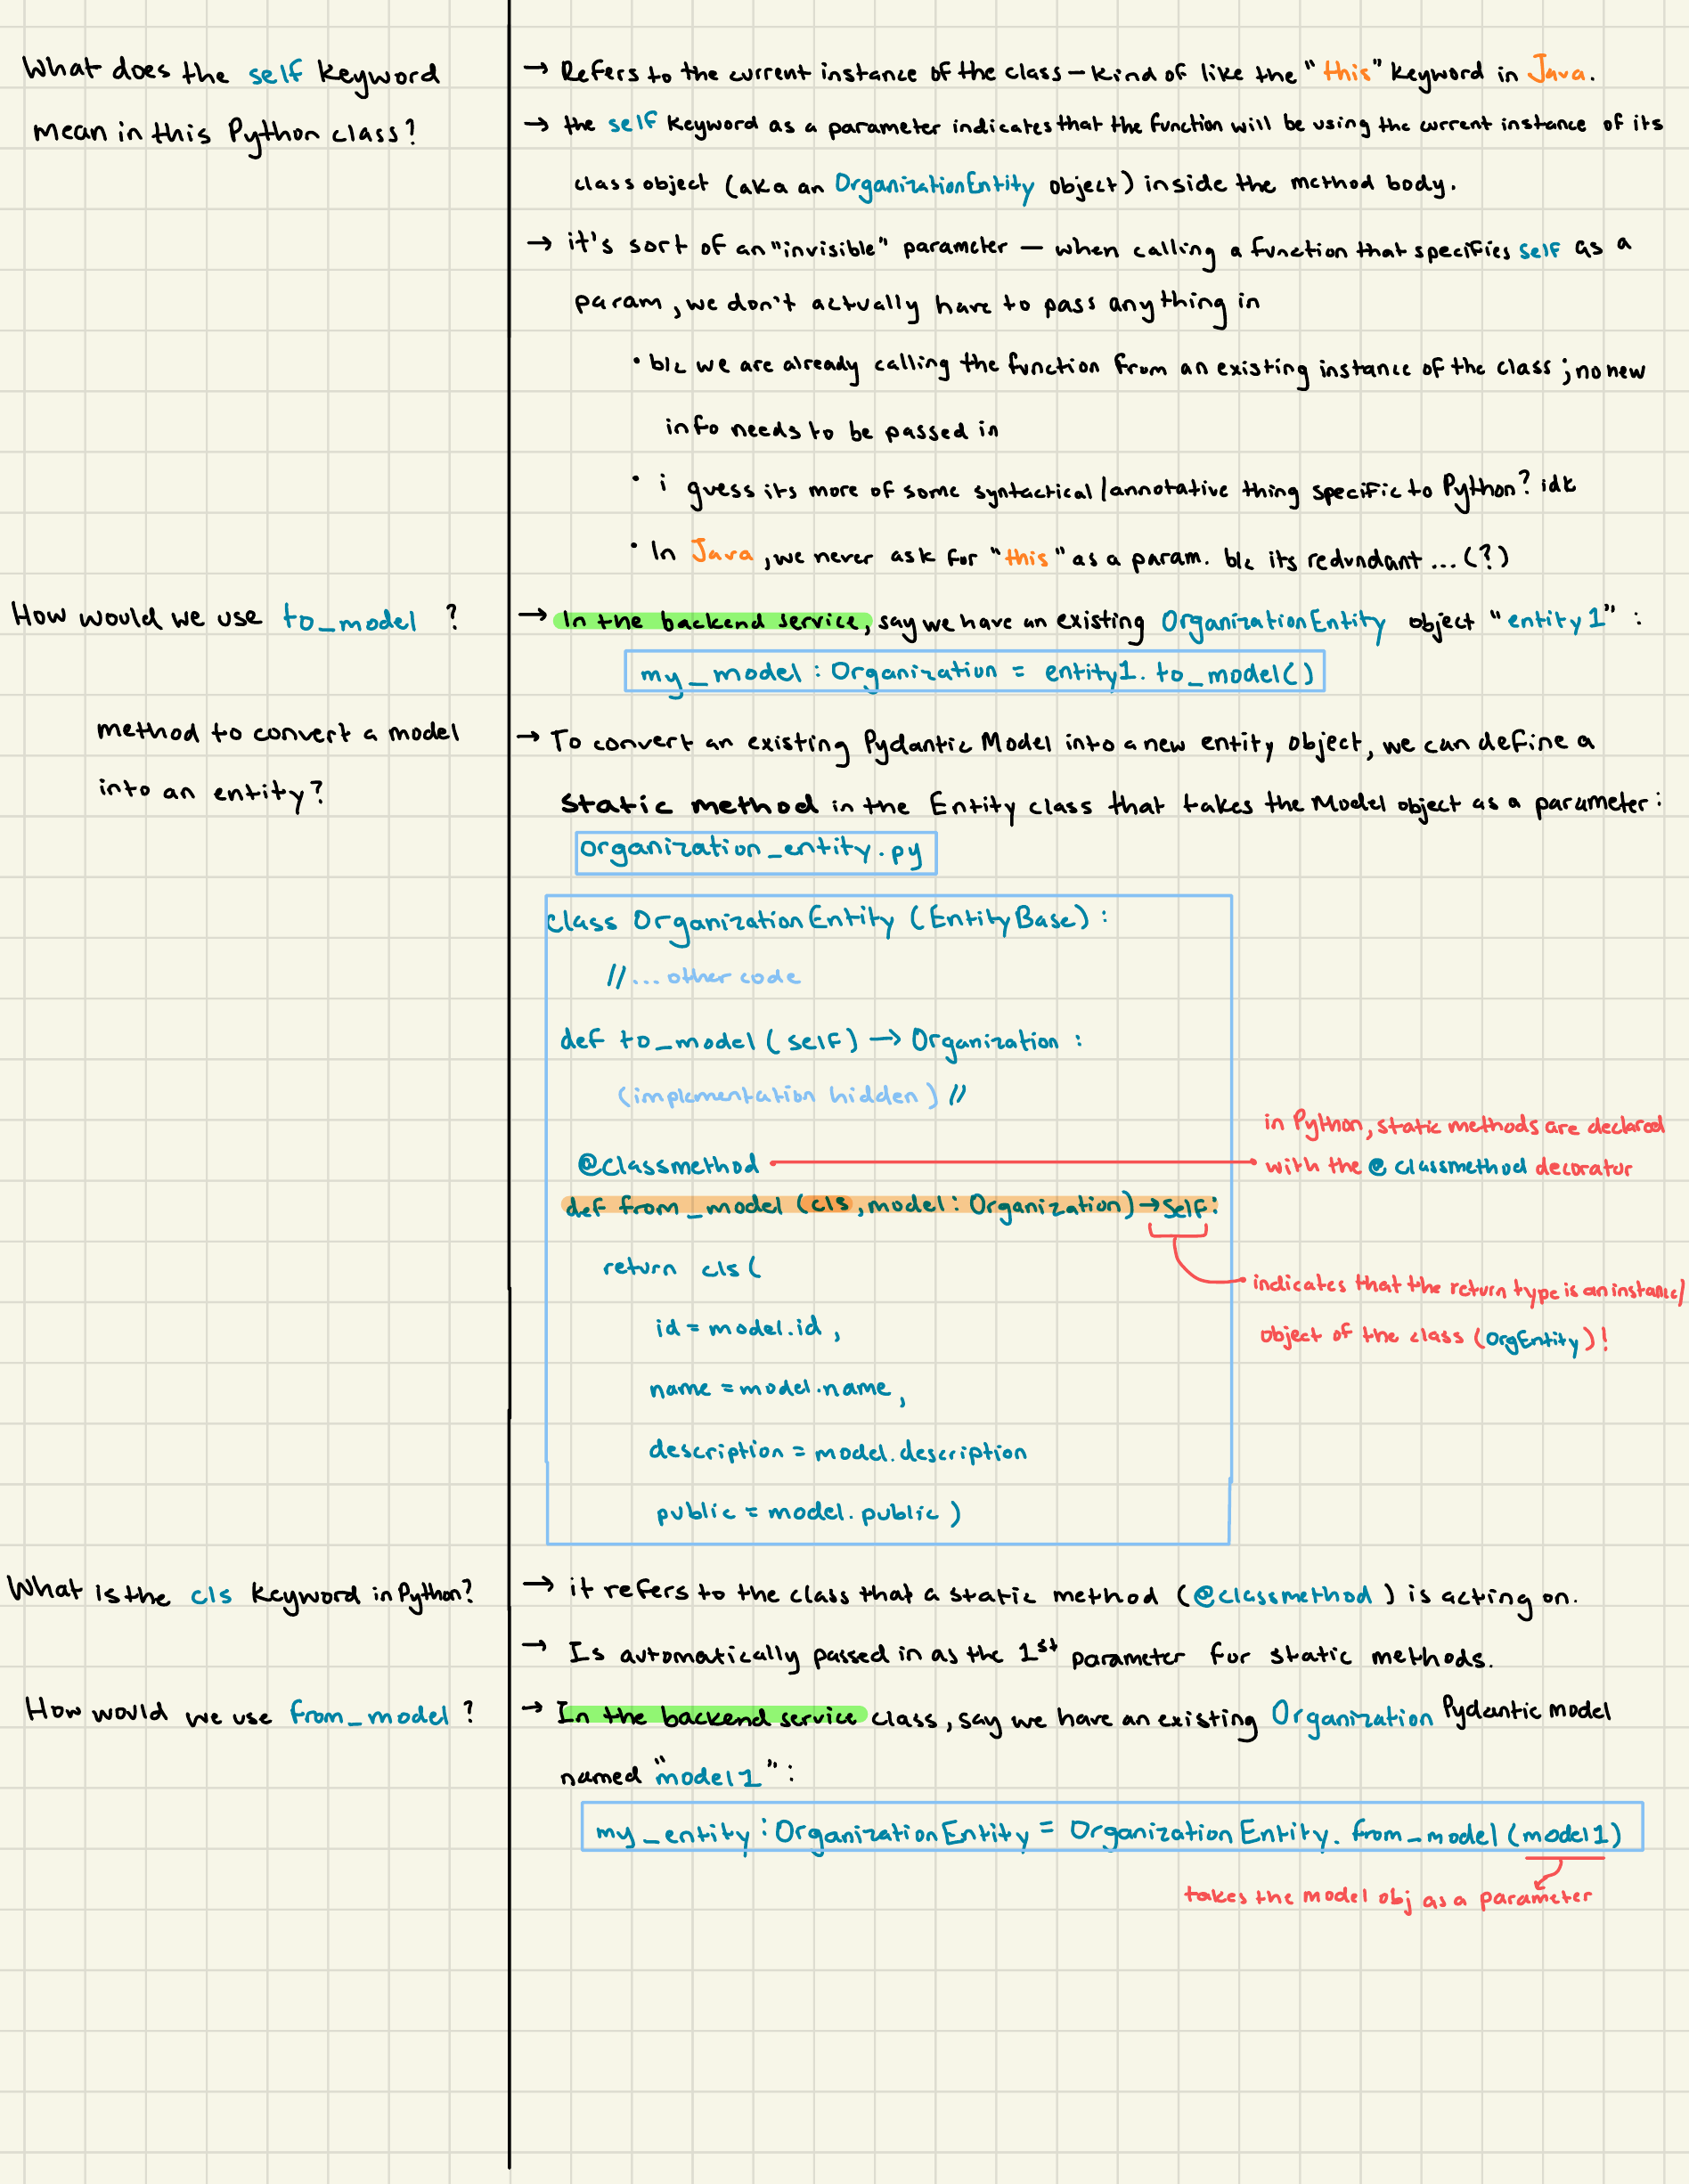 What does the self keyword
mean in this Python class?
→ Refers to the current instance of the class – kind of like the "this" keyword in Java.
→ the self keyword as a parameter indicates that the function will be using the current instance of its
class object (aka an OrganizationEntity object) inside the method body.
→ it's sort of an "invisible" parameter — when calling a function that specifies self as a
param, we don't actually have to pass anything in
• b/c we are already calling the function from an existing instance of the class; no new
info needs to be passed in
• i guess its more of some syntactical/annotative thing specific to Python? idk
• In Java, we never ask for "this" as a param. b/c its redundant ... (?)
How would we use to_model ?
→ In the backend service, say we have an existing OrganizationEntity object "entity1" :
my_model : Organization = entity1.to_model()
method to convert a model
into an entity?
→ To convert an existing Pydantic Model into a new entity object, we can define a
static method in the Entity class that takes the Model object as a parameter:
organization_entity.py
class OrganizationEntity (EntityBase) :
// ... other code
def to_model (self) → Organization :
(implementation hidden) //
@classmethod
def from_model (cls, model: Organization) → Self:
return cls (
id = model.id ,
name = model.name,
description = model.description
public = model.public )
in Python, static methods are declared
with the @classmethod decorator
indicates that the return type is an instance/
object of the class (OrgEntity)!
What is the cls keyword in Python?
→ it refers to the class that a static method (@classmethod) is acting on.
→ Is automatically passed in as the 1st parameter for static methods.
How would we use from_model ?
→ In the backend service class, say we have an existing Organization Pydantic model
named "model1" :
my_entity : OrganizationEntity = OrganizationEntity.from_model (model1)
takes the model obj as a parameter